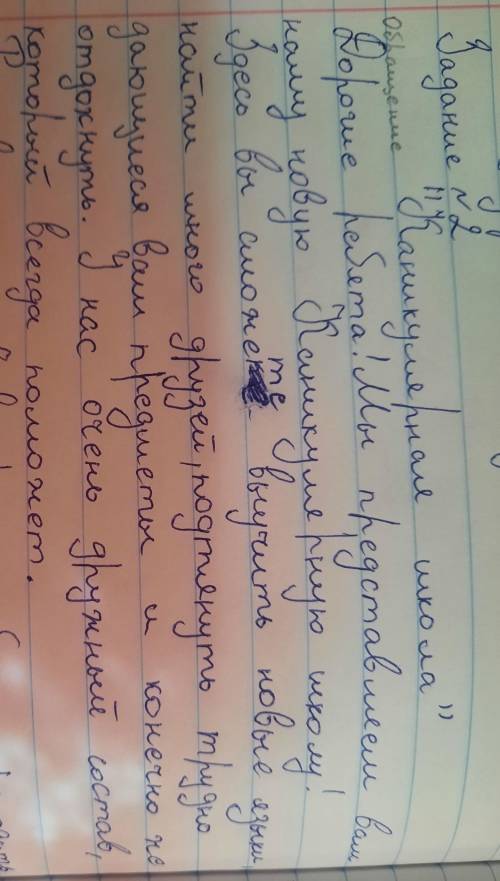 Задание №2
"Каникулярная школа"
обращение
Дорогие рабята! Мы представляем вам
нашу новую Каникулярную школу!
Здесь вы сможете выучить новые языки,
найти много друзей, подтянуть трудно
дающиеся вам предметы и конечно же
отдохнуть. У нас очень дружный состав,
который всегда поможет.